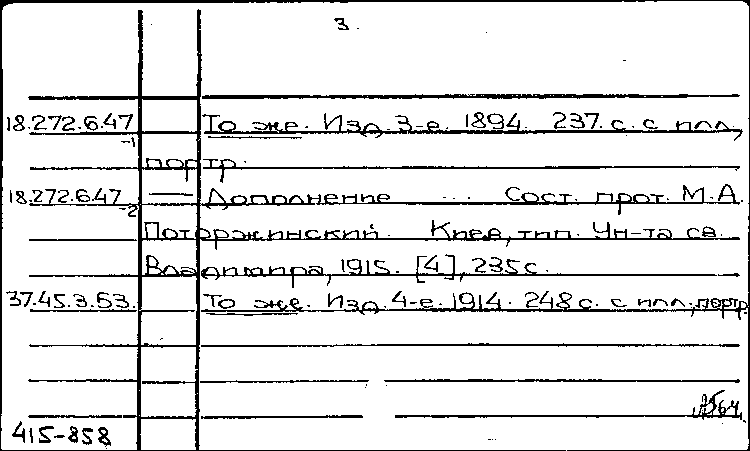 3.
18.272.6.47 То же. Изд. 3-е. 1894. 237. с. с илл.,
-1
портр.
18.272.6.47 — Дополнение ... Сост. прот. М.А.
-2
Поторжинский. Киев, тип. Ун-та св.
Владимира, 1915. [4], 235 с.
37.45.3.53. То же. Изд. 4-е. 1914. 248 с. с илл.; портр.
415-858